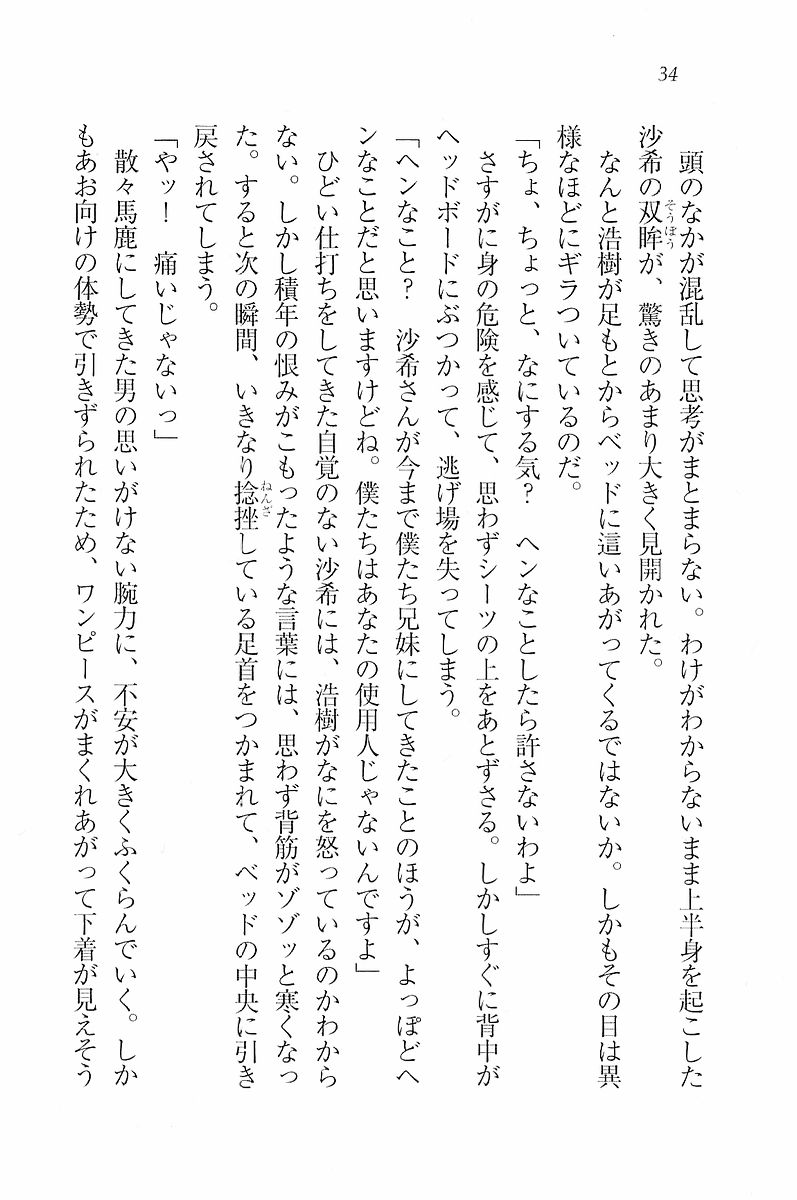 34
頭のなかが混乱して思考がまとまらない。わけがわからないまま上半身を起こした
沙希の双眸が、驚きのあまり大きく見開かれた。
そうぼう
なんと浩樹が足もとからベッドに這いあがってくるではないか。しかもその目は異
様なほどにギラついているのだ。
「ちょ、ちょっと、なにする気？　ヘンなことしたら許さないわよ」
さすがに身の危険を感じて、思わずシーツの上をあとずさる。しかしすぐに背中が
ヘッドボードにぶつかって、逃げ場を失ってしまう。
「ヘンなこと？　沙希さんが今まで僕たち兄妹にしてきたことのほうが、よっぽどヘ
ンなことだと思いますけどね。僕たちはあなたの使用人じゃないんですよ」
ひどい仕打ちをしてきた自覚のない沙希には、浩樹がなにを怒っているのかわから
ない。しかし積年の恨みがこもったような言葉には、思わず背筋がゾゾッと寒くなっ
た。すると次の瞬間、いきなり捻挫している足首をつかまれて、ベッドの中央に引き
ねんざ
戻されてしまう。
「やッ！　痛いじゃないっ」
散々馬鹿にしてきた男の思いがけない腕力に、不安が大きくふくらんでいく。しか
もあお向けの体勢で引きずられたため、ワンピースがまくれあがって下着が見えそう